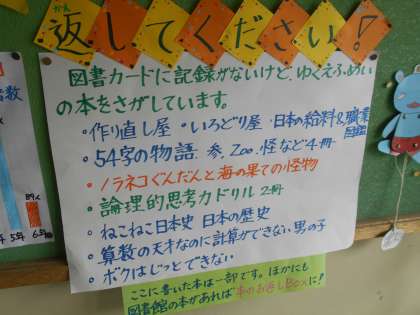 返してください!
図書カードに記録がないけど、ゆくえふめい
の本をさがしています。
・作り直し屋 ・いろどり屋 ・日本の給料&職業図鑑
・54字の物語 参、Zoo、怪など4冊
・ノラネコぐんだんと海の果ての怪物
・論理的思考力ドリル 2冊
・ねこねこ日本史 日本の歴史
・算数の天才なのに計算ができない男の子
・ボクはじっとできない
ここに書いた本は一部です。ほかにも
図書館の本があれば 本のお返しBoxに!
者数
5年